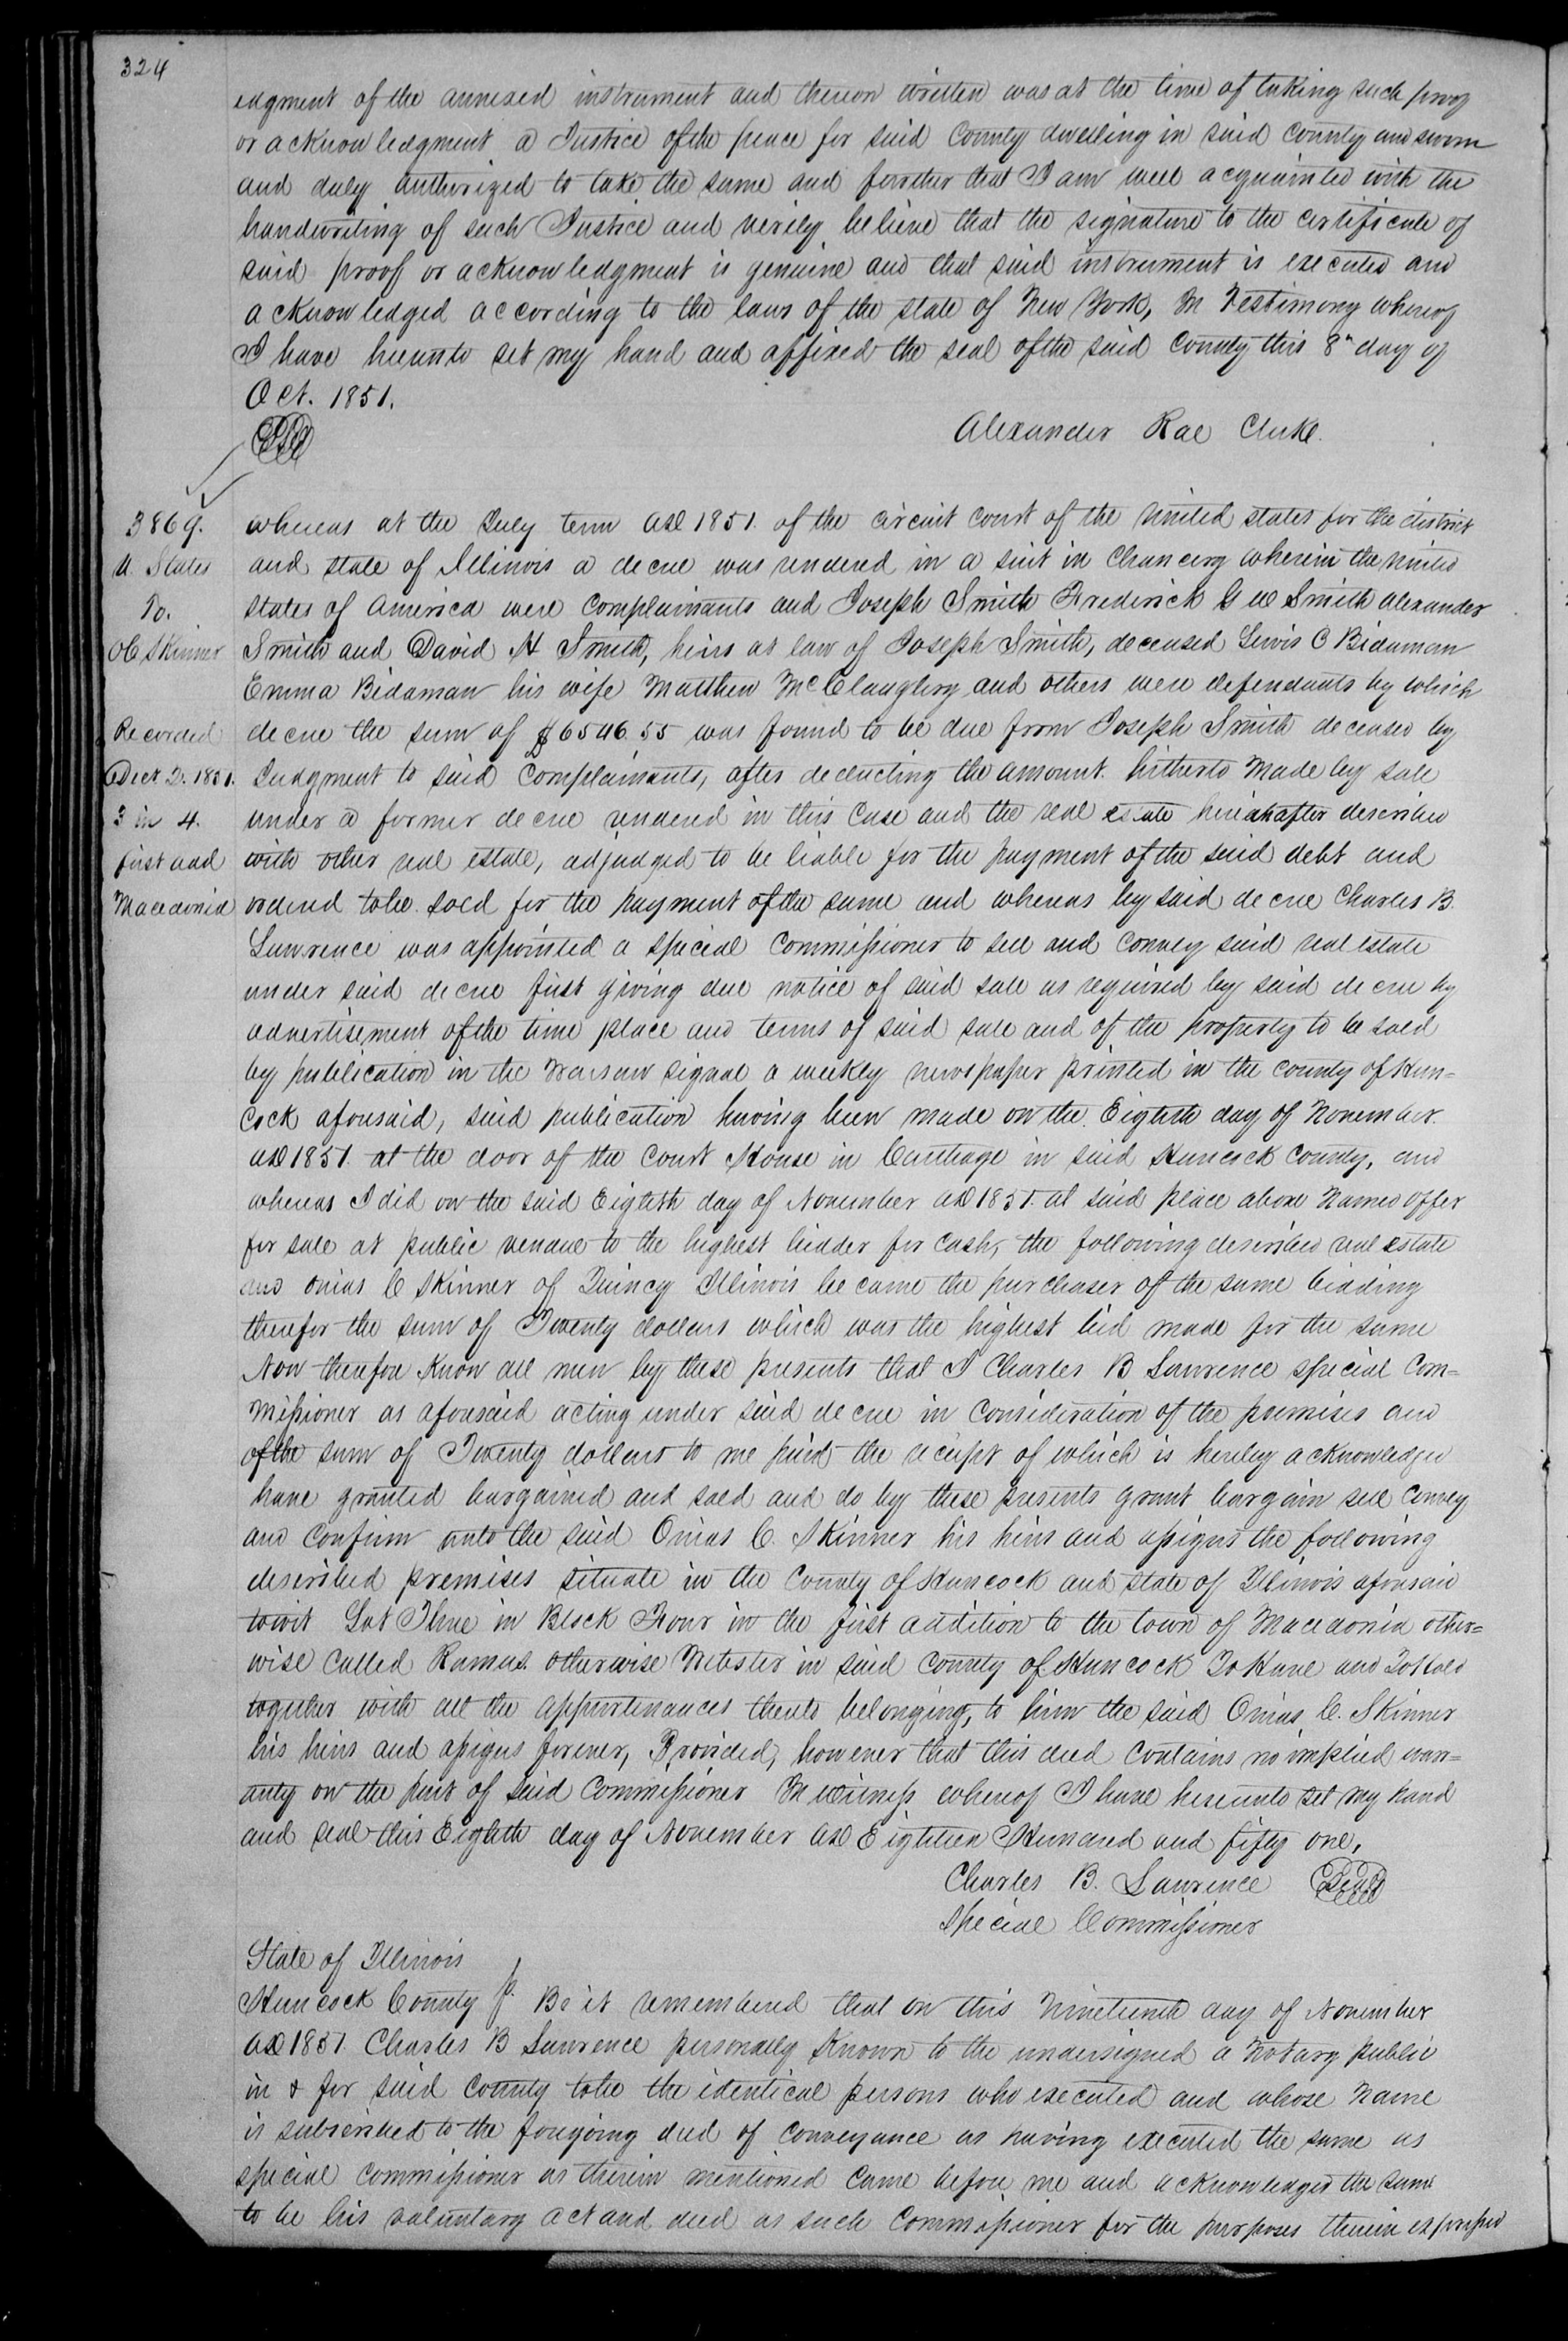 324
edgment of the annexed instrument and thereon written was at the time of taking such proof
or acknowledgment a Justice of the peace for said County dwelling in said county and sworn
and duly authorized to take the same and further that I am well acquainted with the
handwriting of such Justice and verily believe that the signature to the certificate of
said proof or acknowledgment is genuine and that said instrument is executed and
acknowledged according to the laws of the state of New York, In Testimony whereof
I have hereunto set my hand and affixed the seal of the said County this 8th day of
Oct. 1851.
Alexander Rae Clerk.
3869.
U. States
To.
O C Skinner
Recorded
Dect 2. 1851.
3 in 4.
first add
Macedonia
whereas at the July term AD 1851. of the circuit court of the United states for the district
and state of Illinois a decree was rendered in a suit in Chancery wherein the United
states of America were Complainants and Joseph Smith Frederick G W Smith Alexander
Smith and David H Smith, heirs at law of Joseph Smith, deceased Lewis C Bidaman
Emma Bidaman his wife Matthew McClaughry and others were defendants by which
decree the sum of $6546.55 was found to be due from Joseph Smith deceased by
Judgment to said Complainants, after deducting the amount hitherto made by sale
under a former decree rendered in this Case and the real estate hereinafter described
with other real estate, adjudged to be liable for the payment of the said debt and
ordered to be sold for the payment of the same and whereas by said decree Charles B.
Lawrence was appointed a special Commissioner to sell and convey said real estate
under said decree first giving due notice of said sale as required by said decree by
advertisement of the time place and terms of said sale and of the property to be sold
by publication in the Warsaw signal a weekly newspaper printed in the county of Han=
cock aforesaid, said publication having been made on the Eighth day of November
AD 1851. at the door of the Court House in Carthage in said Hancock County, and
whereas I did on the said Eighth day of November AD 1851. at said place above Named offer
for sale at public vendue to the highest bidder for cash, the following described real estate
and Onias C Skinner of Quincy Illinois became the purchaser of the same bidding
therefor the sum of Twenty dollars which was the highest bid made for the same
Now therefore Know all men by these presents that I Charles B Lawrence special Com=
missioner as aforesaid acting under said decree in Consideration of the premises and
of the sum of Twenty dollars to me paid the receipt of which is hereby acknowledged
have granted bargained and sold and do by these presents grant bargain sell convey
and Confirm unto the said Onias C. Skinner his heirs and assigns the following
described premises situate in the County of Hancock and state of Illinois aforesaid
towit Lot Three in Block Four in the first addition to the town of Macedonia other=
wise called Ramus. otherwise Webster in said County of Hancock To Have and To Hold
together with all the appurtenances thereto belonging, to him the said Onias C. Skinner
his heirs and assigns forever, Provided, however that this deed contains no implied warr=
anty on the part of said Commissioner In witness whereof I have hereunto set my hand
and seal this Eighth day of November AD Eighteen Hundred and fifty one,
Charles B. Lawrence Seal
Special Commissioner
State of Illinois
Hancock County ss. Be it remembered that on this Nineteenth day of November
AD 1851. Charles B Lawrence personally Known to the undersigned a Notary public
in & for said county to be the identical persons who executed and whose Name
is subscribed to the foregoing deed of conveyance as having executed the same as
special Commissioner as therein mentioned came before me and acknowledged the same
to be his voluntary act and deed as such Commissioner for the purposes therein expressed